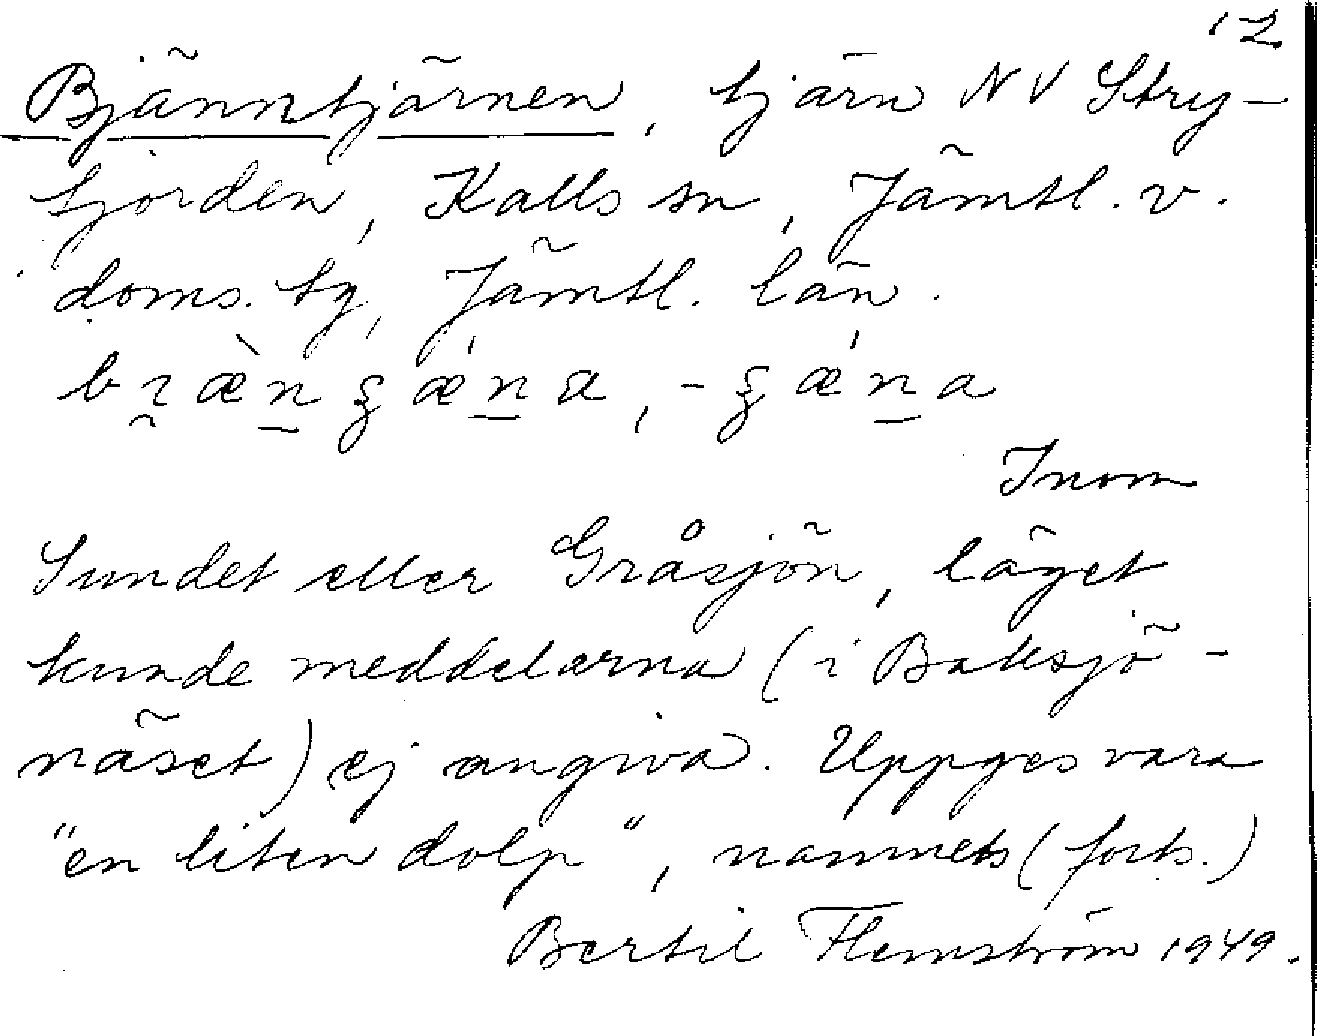 12
Bjänntjärnen, tjärn NV Stry-
tjorden, Kalls sn, Jämtl. v.
doms. tg, Jämtl. län.
Inom
Sundet eller Gråsjön, läget
kunde meddelarna (i Baksjö-
näset) ej angiva. Uppges vara
"en liten dolp", namnets (forts.)
Bertil Flemström 1949.